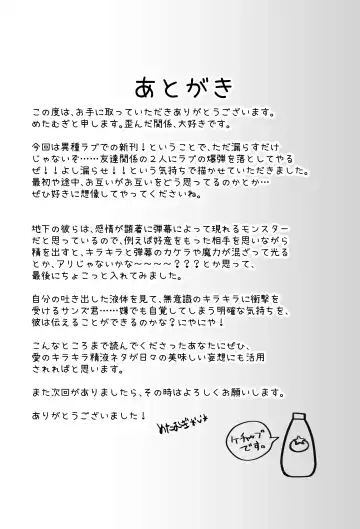 あとがき
この度は、お手に取っていただきありがとうございます。
めたむぎと申します。歪んだ関係、大好きです。
今回は異種ラブでの新刊！ということで、ただ漏らすだけ
じゃないぞ……友達関係の２人にラブの爆弾を落としてやる
ぜ！！よし漏らせ！！という気持ちで描かせていただきました。
最初や途中、お互いがお互いをどう思ってるのかとか…
ぜひ好きに想像してやってくださいね。
地下の彼らは、感情が顕著に弾幕によって現れるモンスター
だと思っているので、例えば好意をもった相手を思いながら
精を出すと、キラキラと弾幕のカケラや魔力が混ざって光る
とか、アリじゃないかな～～～～？？？とか思って、
最後にちょこっと入れてみました。
自分の吐き出した液体を見て、無意識のキラキラに衝撃を
受けるサンズ君……嫌でも自覚してしまう明確な気持ちを、
彼は伝えることができるのかな？にやにや！
こんなところまで読んでくださったあなたにぜひ、
愛のキラキラ精液ネタが日々の美味しい妄想にも活用
されればと思います。
また次回がありましたら、その時はよろしくお願いします。
ありがとうございました！
ケチャップ
です。